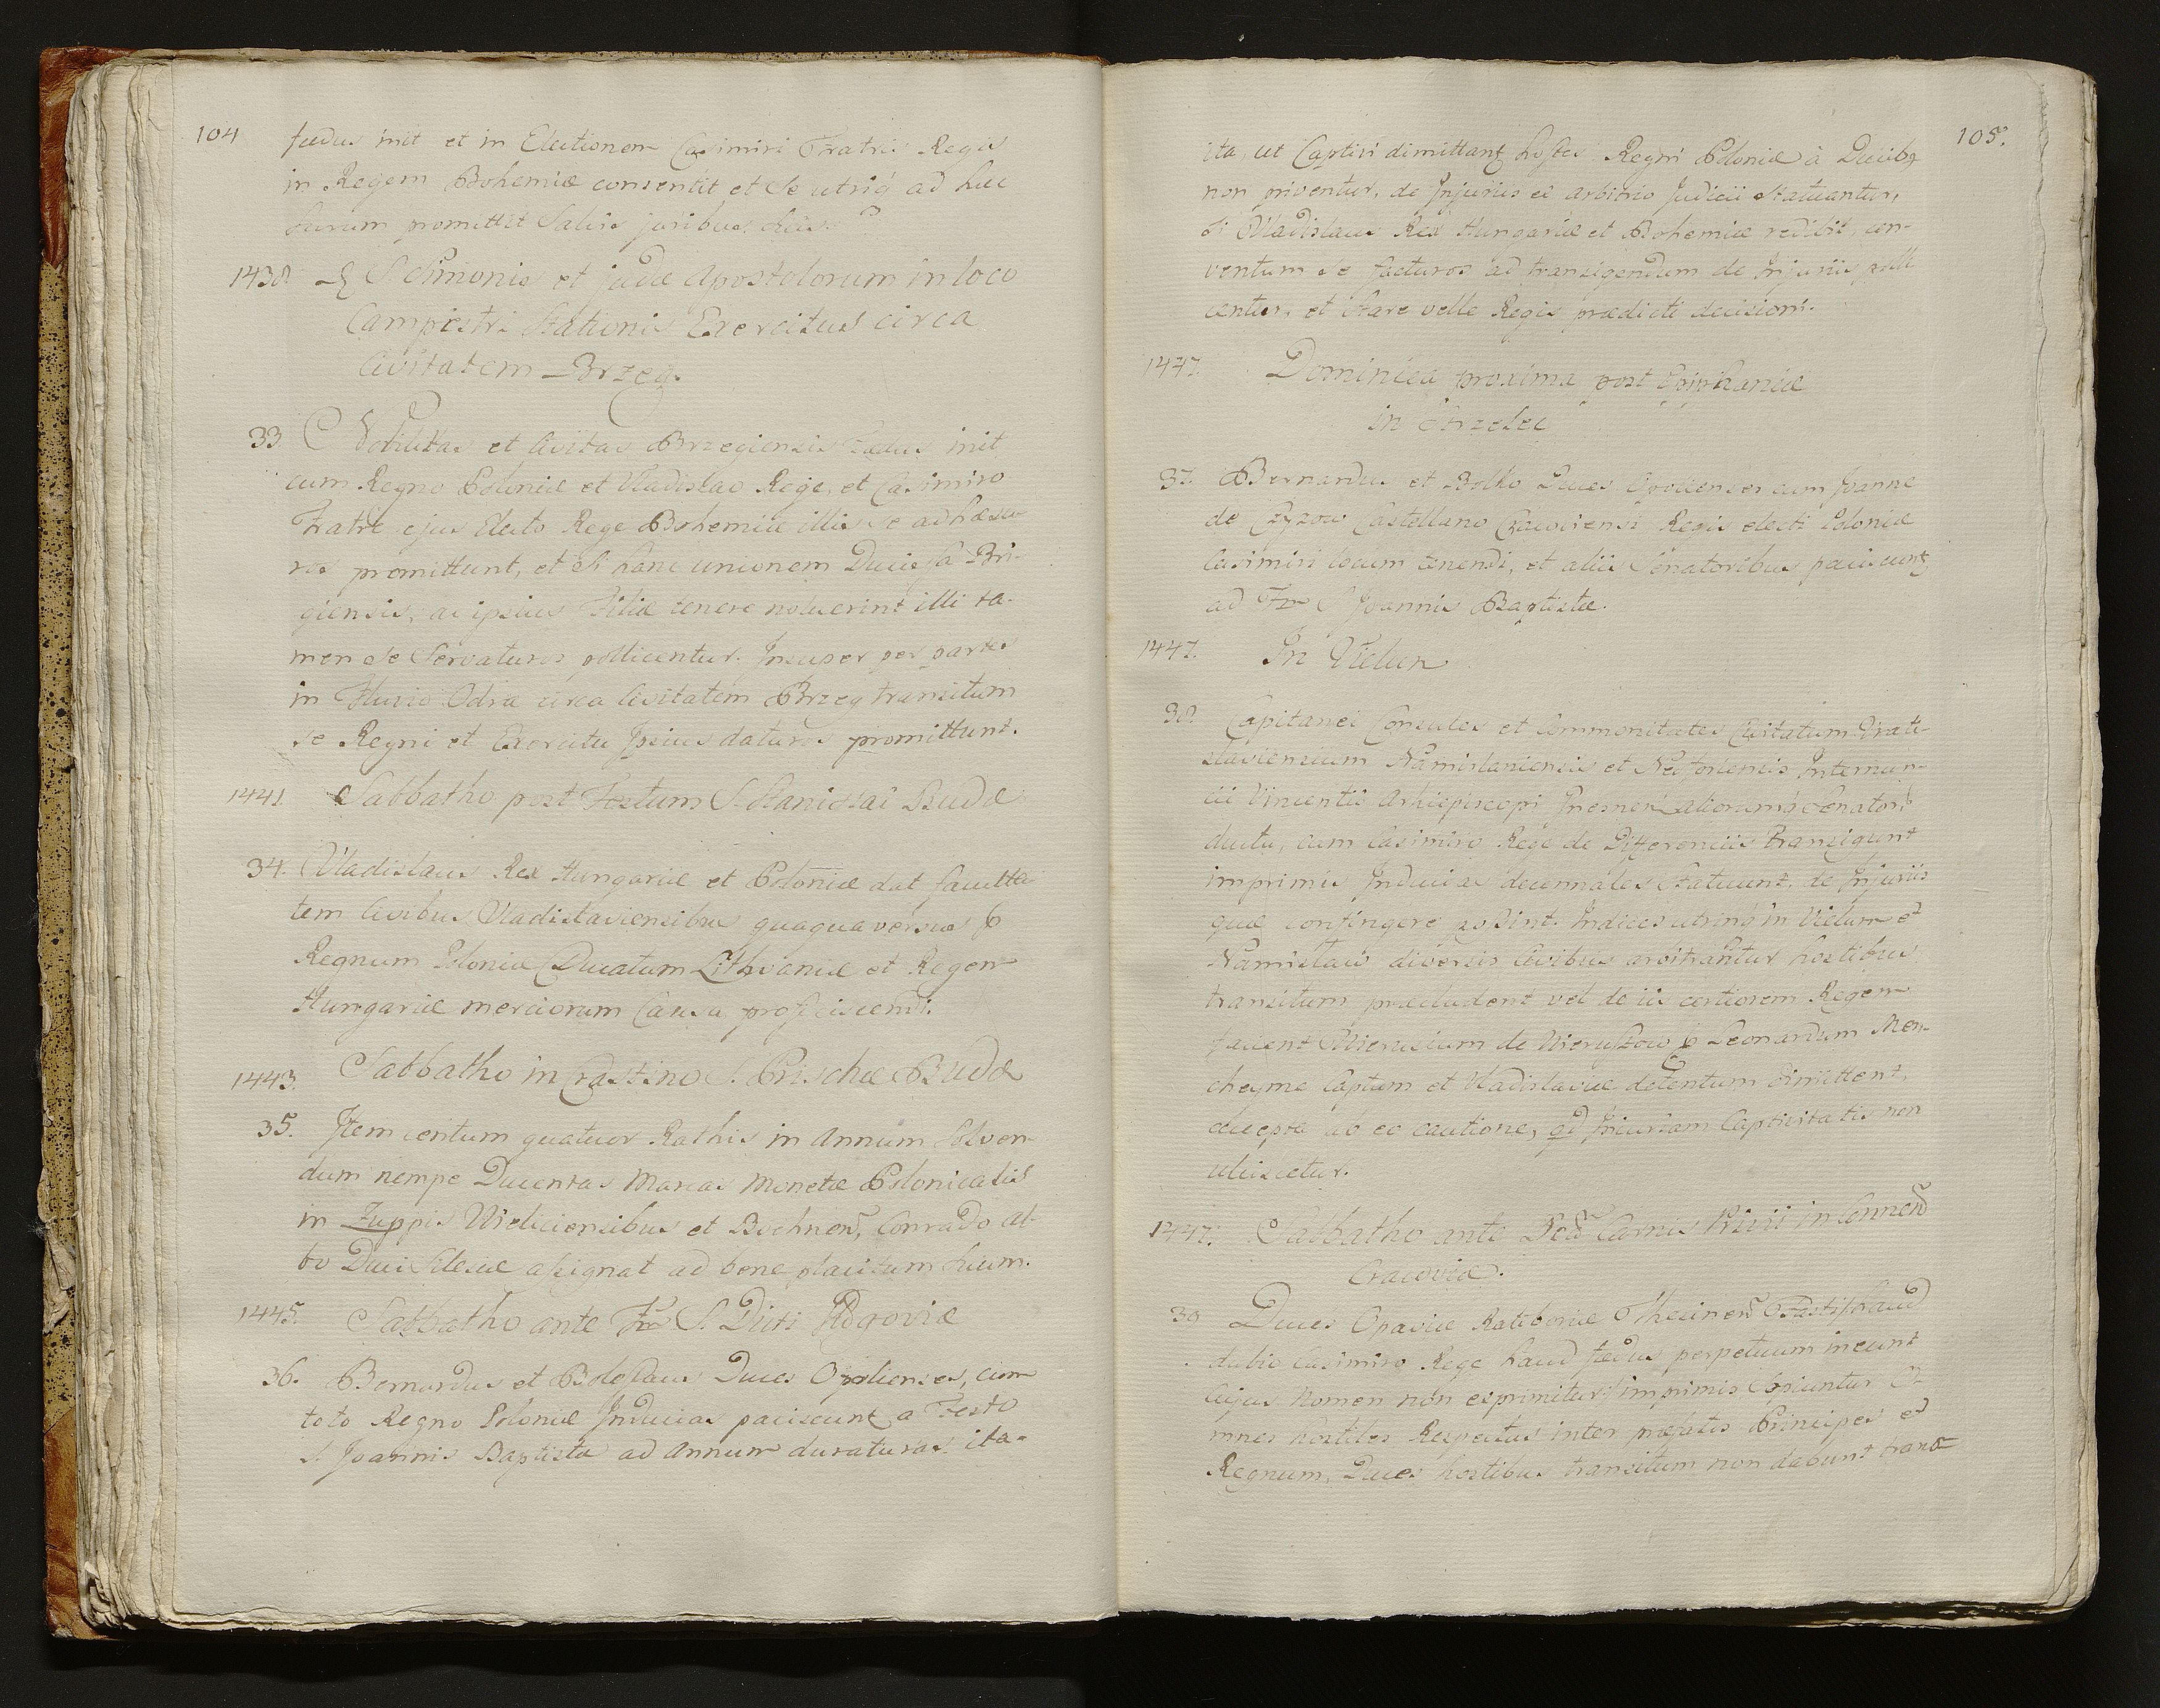 104
fœdus init et in Electionem Casimiri Fratris Regis
in Regem Bohemiæ consentit et se utriq ad
suturum promittit Salvis juribus suis.
1438 S. Simonis et judæ Apostolorum in loco
Campestri Stationis Exercitus circa
Civitatem Brzeg.
33 Nobilitas et Civitas Brzegiensis Fœdus init
cum Regno Poloniæ et Vladislao Rege, et Casimiro
Fratre ejus Electo Rege Bohemiæ illis se adhæsu-
ros promittunt, et si hanc unionem Ducissa Bri-
giensis, ac ipsius Filiæ tenere noluerint illi ta-
men se Servaturos pollicentur. Insuper per partes
in Fluvio Odra circa Civitatem Brzeg transitum
se Regni et Exercitu Ipsius daturos promittunt.
1441 Sabbatho post Festum S. Stanislai Budæ
34. Vladislaus Rex Hungariæ et Poloniæ dat faculta-
tem Civibus Vladislaviensibus quaquaversus
Regnum Poloniæ Ducatum Lithvaniæ et Regem
Hungariæ merciorum Causa proficiscendi.
1443 Sabbatho in Crastino S. Prischæ Budæ
35. Item centum quatuor Rathis in Annum Solven-
dum nempe Ducentas Marcas Monetæ Polonicalis
in Zuppis Vieliciensibus et Bochnen, Conrado al-
bo Duci Silesiæ assignat ad bene placitum suum.
1445. Sabbatho ante S. Viti
36. Bernardus et Boleslaus Duces Opolienses, cum
toto Regno Poloniæ Inducias paciscunt a Festo
S. Joannis Baptistæ ad Annum duraturas ita-
105.
ita, ut Captivi dimittant, hostes Regni Poloniæ à Ducibq
non priventur, de Injuriis ex arbitrio Judicii statuantur,
si Vladislaus Rex Hungariæ et Bohemiæ redibit, con-
ventum se facturos ad transigendum de Injuriis polli
centur, et stare velle Regis prædicti decisioni.
1447. Dominica proxima post Epiphaniæ
in Strzelec
37. Bernardus et Bolko Duces Opolienses cum Joanne
de Czyzow Castellano Cracoviensi Regis electi Poloniæ
Casimiri locum tenendi, et aliis Senatoribus paciscunt
ad S. Joannis Baptistæ.
1447. In Vielun
38 Capitanei Consules et Commonitates Civitatum Vrati-
slaviensium Namislaviensis et Internun-
cii Vincentii Archiepiscopi Gnesnen aliorumq Senatorũ
ductu, cum Casimiro Rege de Differenciis Transigunt
imprimis Inducias decennales Statuunt, de Injuriis
quæ contingere possint. Indices utrinq in Vielun et
Namislaw diversis Civibus arbitrantur hostibus
transitum præcludent vel de iis certiorem Regem
facient de Leonardum Men-
cheyme Captum et Vladislaviæ detentum dimittent,
accepta ab eo cautione, qd Incuriam Captivitatis non
ulciscetur.
1447. Sabbatho ante Carnis Privii in
Cracoviæ.
39 Duces Opaviæ Ratiboriæ
dubio Casimiro Rege haud fœdus perpetuum ineunt
cujus nomen non exprimitur imprimis Copiuntur O-
mnes hostiles Respectus inter præfatos Principes et
Regnum, Duces hostibus transitum non dabunt trans